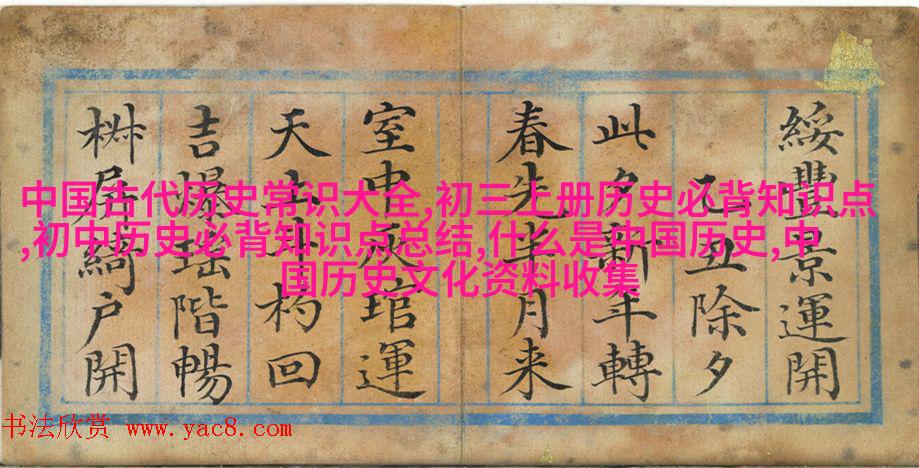 綏豐景運開
己丑除夕
此夕新年轉
春先半月来
室中琯運
天上斗杓回
吉爆瑶階暢
綺户開
中国古代历史常识大全,初三上册历史必背知识点
,初中历史必背知识点总结,什么是中国历史,中
国历史文化资料收集
书法欣赏 www.yac8.com